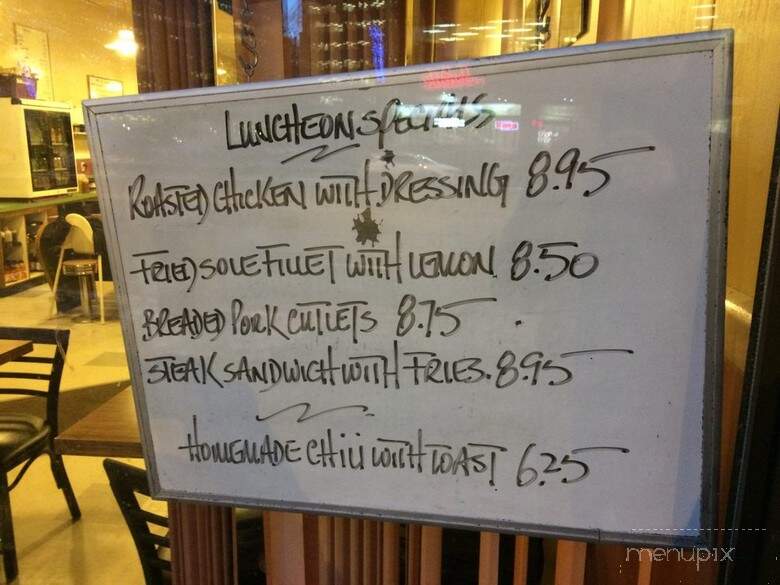 LUNCHEON SPECIALS
ROASTED CHICKEN WITH DRESSING 8.95
FRIED SOLE FILLET WITH LEMON 8.50
BREADED PORK CUTLETS 8.75
STEAK SANDWICH WITH FRIES. 8.95
HOMEMADE CHILI WITH TOAST 6.25
menupix